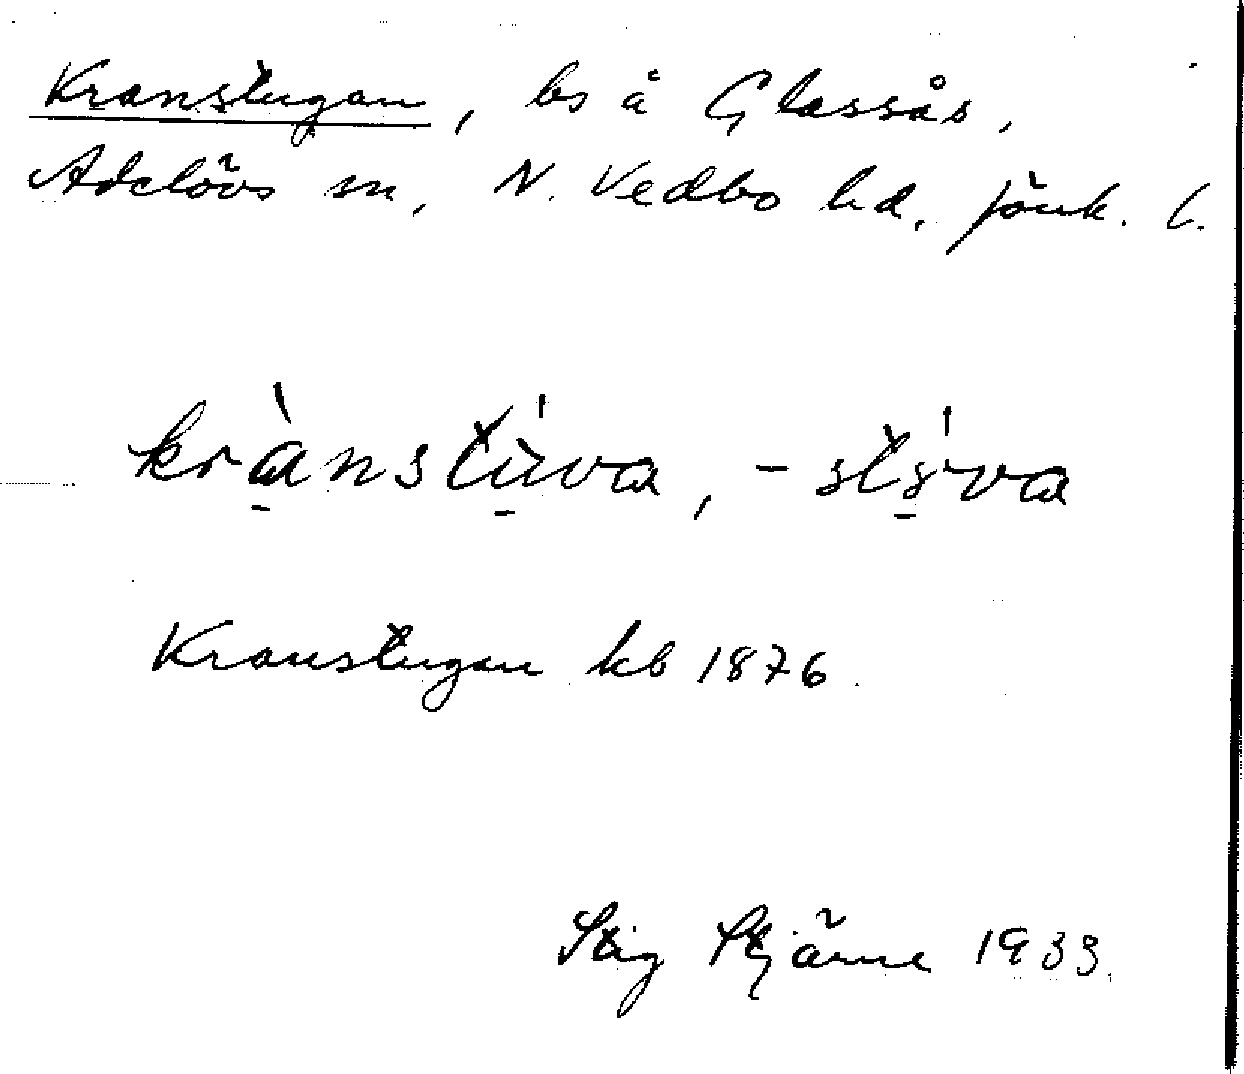 Kranstugan, bs å Glassås,
Adelövs sn, N. Vedbo hd, Jönk. l.
krànstùva, -
Kranstugan kb 1876
Stig Stjärne 1933.